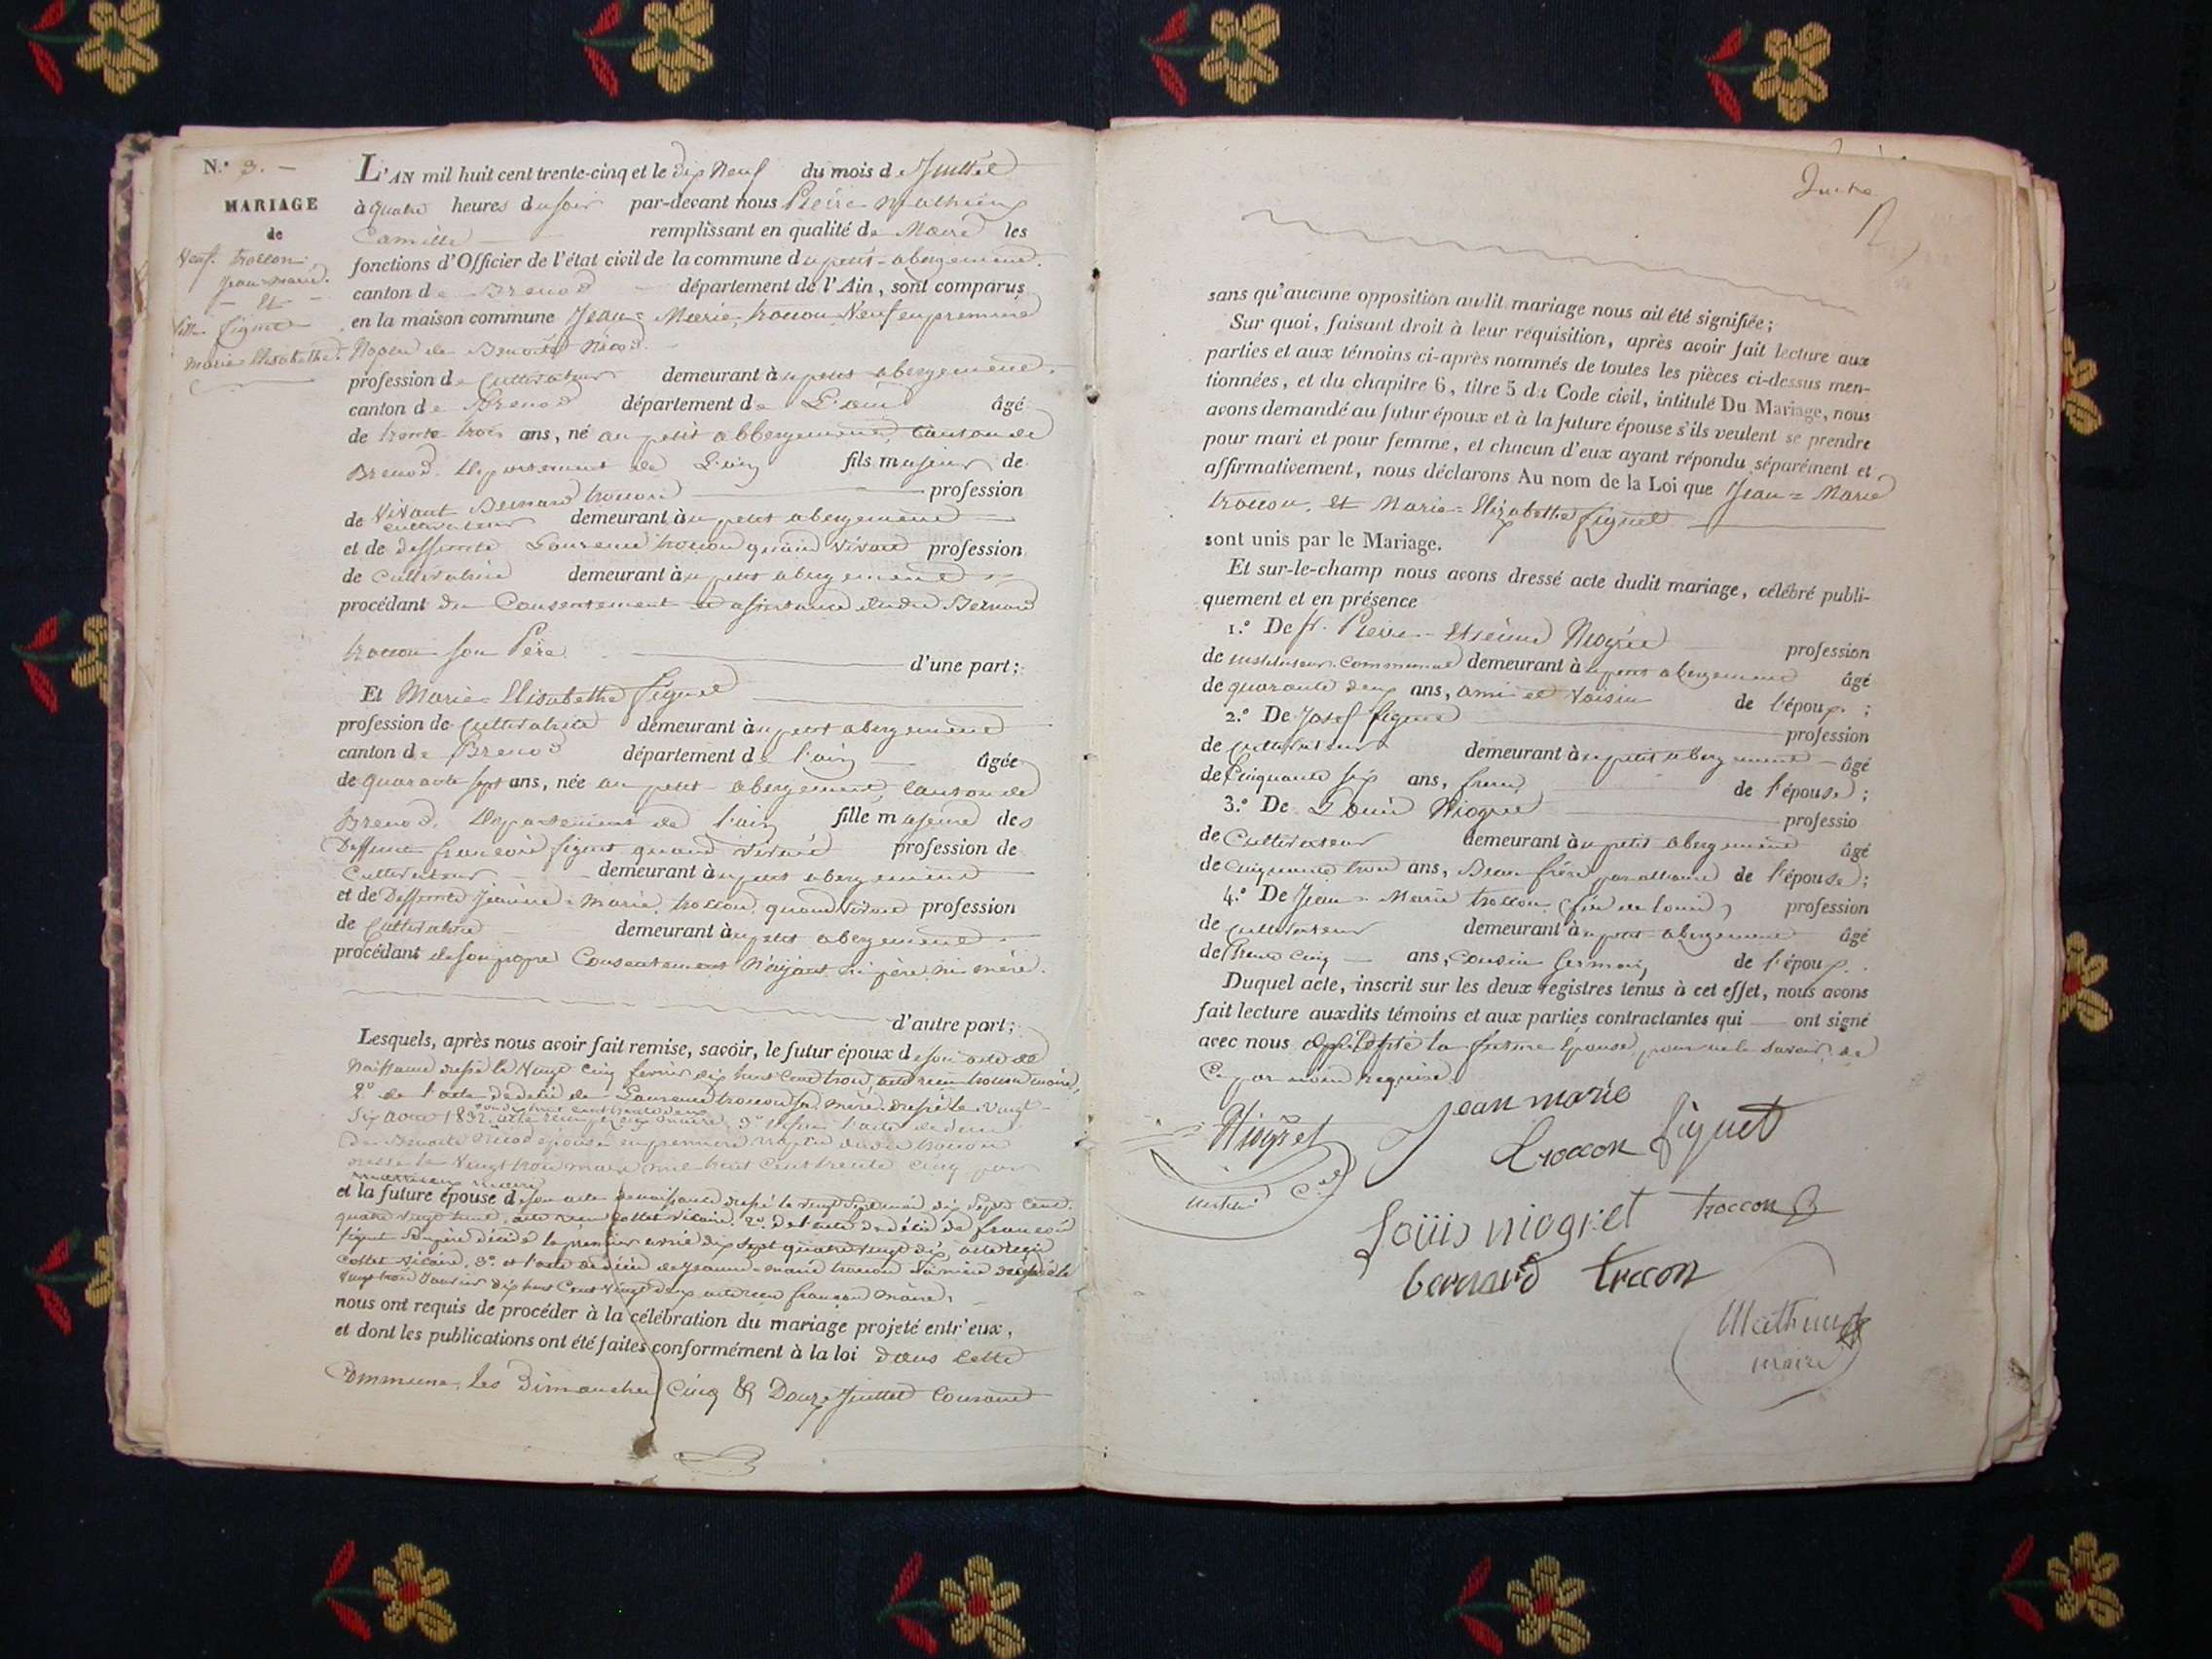 N.º 3. —
MARIAGE
de
Veuf. troccon
jean marie.
— Et —
fille figuet
marie Elisabethe.
L'AN mil huit cent trente-cinq et le dix Neuf du mois de Juillet
à quatre heures du soir par-devant nous Pierre Mathieux
Camille remplissant en qualité de Maire les
fonctions d'Officier de l'état civil de la commune du petit-abergement.
canton de Brenod département de l'Ain, sont comparus
en la maison commune Jean=Marie, troccon Veuf en premiere
Nopce de Benoite Nicod.
profession de Cultivateur demeurant au petit abergement.
canton de Brenod département de L'ain âgé
de trente trois ans, né au petit abbergement, Canton de
Brenod. Département de L'ain fils majeur de
Vivant Bernard troccon profession
de cultivateur demeurant au petit abergement
et de deffunte Laurence troccon quand vivait profession
de Cultivatrice demeurant au petit abergement
procédant du Consentement et assistance dudit Bernard
troccon son Père. d'une part;
Et Marie=Elisabethe figuet
profession de Cultivatrice demeurant au petit abergement
canton de Brenod département de l'ain âgée
de quarante sept ans, née au petit-abergement, Canton de
Brenod. Département de l'ain fille majeure des
Deffunt françois figuet quand vivait profession de
Cultivateur demeurant au petit abergement
et de Deffunte Jeanne=Marie troccon. quand vivait profession
de Cultivatrice demeurant au petit abergement
procédant de son propre Consentement N'ayant ni père ni mère.
d'autre part;
Lesquels, après nous avoir fait remise, savoir, le futur époux de son acte de
Naissance dressé le Vingt Cinq fevrier dix huit Cent trois, acte reçu troccon maire,
2º de l'acte de décès de Laurence troccon sa mère dressé le Vingt-
Six aout 1832. maire, 3º enfin l'acte de décès
de Benoite Nicod épouse en premiere Nopce dudit troccon
dressé le Vingt trois mars mil huit Cent trente Cinq par
mathieux maire
et la future épouse de son acte de naissance dressé le vingt mai dix Sept Cent.
quatre vingt huit, acte reçu Collet Vicaire. 2º. De l'acte de décès de françois
figuet Son père décédé le premier dix Sept quatre vingt dix, acte reçu
Collet Vicaire, 3º et l'acte de décès de Jeanne=marie troccon Sa mère dressé le
Vingt trois Janvier dix huit Cent Vingt deux acte reçu maire,
nous ont requis de procéder à la célébration du mariage projeté entr'eux,
et dont les publications ont été faites conformément à la loi dans Cette
Commune. les Dimanches Cinq & Douze Juillet Courant
sans qu'aucune opposition audit mariage nous ait été signifiée;
Sur quoi, faisant droit à leur réquisition, après avoir fait lecture aux
parties et aux témoins ci-après nommés de toutes les pièces ci-dessus men-
tionnées, et du chapitre 6, titre 5 du Code civil, intitulé Du Mariage, nous
avons demandé au futur époux et à la future épouse s'ils veulent se prendre
pour mari et pour femme, et chacun d'eux ayant répondu séparément et
affirmativement, nous déclarons Au nom de la Loi que Jean=Marie
troccon. et Marie=Elizabethe figuet
sont unis par le Mariage.
Et sur-le-champ nous avons dressé acte dudit mariage, célébré publi-
quement et en présence
1.º De Sr. Pierre-Etienne Niogret profession
de instituteur Communal demeurant au petit abergement âgé
de quarante deux ans, ami et Voisin de l'époux ;
2.º De Josef figuet profession
de cultivateur demeurant au petit abergement âgé
de Cinquante six ans, frere de l'épouse ;
3.º De Louis Niogret professio
de Cultivateur demeurant au petit abergement âgé
de Cinquante trois ans, Beau frère par alliance de l'épouse ;
4.º De Jean=Marie troccon (feu de louis) profession
de cultivateur demeurant au petit-abergement âgé
de Trente Cinq ans, Cousin Germain de l'époux.
Duquel acte, inscrit sur les deux registres tenus à cet effet, nous avons
fait lecture auxdits témoins et aux parties contractantes qui ont signé
avec nous la future Epouse, pour ne le savoir, de
Ce par nous requise.
Niogret
jean marie
troccon figuet
Loüis niogret troccon
bernard trocon
Mathieux
maire